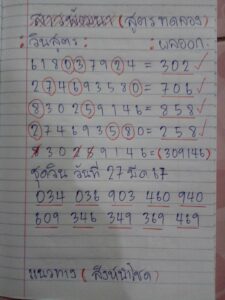 ลาวพัฒนา (สูตรทดลอง)
: วินสูตร : : ผลออก :
618037924 = 302 ✓
274693580 = 706 ✓
830259146 = 858 ✓
274693580 = 258 ✓
830259146 = (309146)
ชุดวิน วันที่ 27 มีค 67
034 036 903 460 940
609 346 349 369 469
แนวทาง (สิงห์นำโชค)